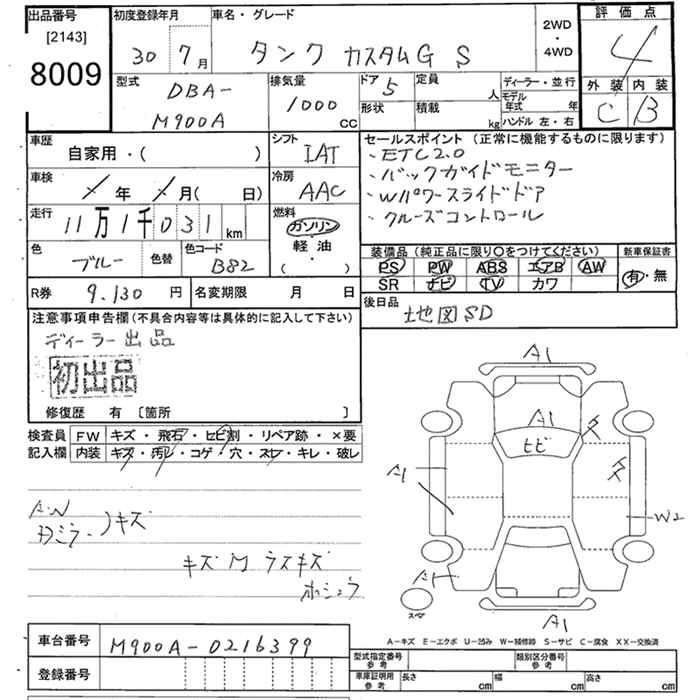 出品番号
[2143]
8009
初度登録年月
30年 7月
車名・グレード
タンク カスタムG S
2WD
・
4WD
評価点
4
外装 内装
C B
型式
DBA-
M900A
排気量
1000
CC
ドア 5
形状
定員
人
積載
kg
ディーラー・並行
モデル年式 年
ハンドル 左・右
車歴
自家用・( )
シフト
IAT
車検
年 月( 日)
冷房
AAC
走行
11万1千031
km
燃料
ガソリン
・
軽油
( )
色
ブルー
色替
色コード
B82
R券 9.130 円
名変期限 月 日
セールスポイント (正常に機能するものに限ります)
・ETC2.0
・バックガイドモニター
・Wパワースライドドア
・クルーズコントロール
装備品 (純正品に限り○をつけてください)
PS PW ABS エアB AW
SR ナビ TV カワ
新車保証書
有・無
後日品
地図SD
注意事項申告欄(不具合内容等は具体的に記入して下さい)
ディーラー出品
初出品
修復歴 有 [箇所 ]
検査員
記入欄
FW キズ・飛石・ヒビ割・リペア跡・×要
内装 キズ・汚レ・コゲ・穴・スレ・キレ・破レ
AW
ミラー キズ
キズ M ラスキズ
ホシュウ
A1
A1
ヒビ
A1
W2
A1
A1
スペア
A-キズ E-エクボ U-凹み W-補修跡 S-サビ C-腐食 XX-交換済
車台番号 M900A-0216399
登録番号
型式指定番号
参考
類別区分番号
参考
車庫証明用
参考
長さ cm
幅 cm
高さ cm